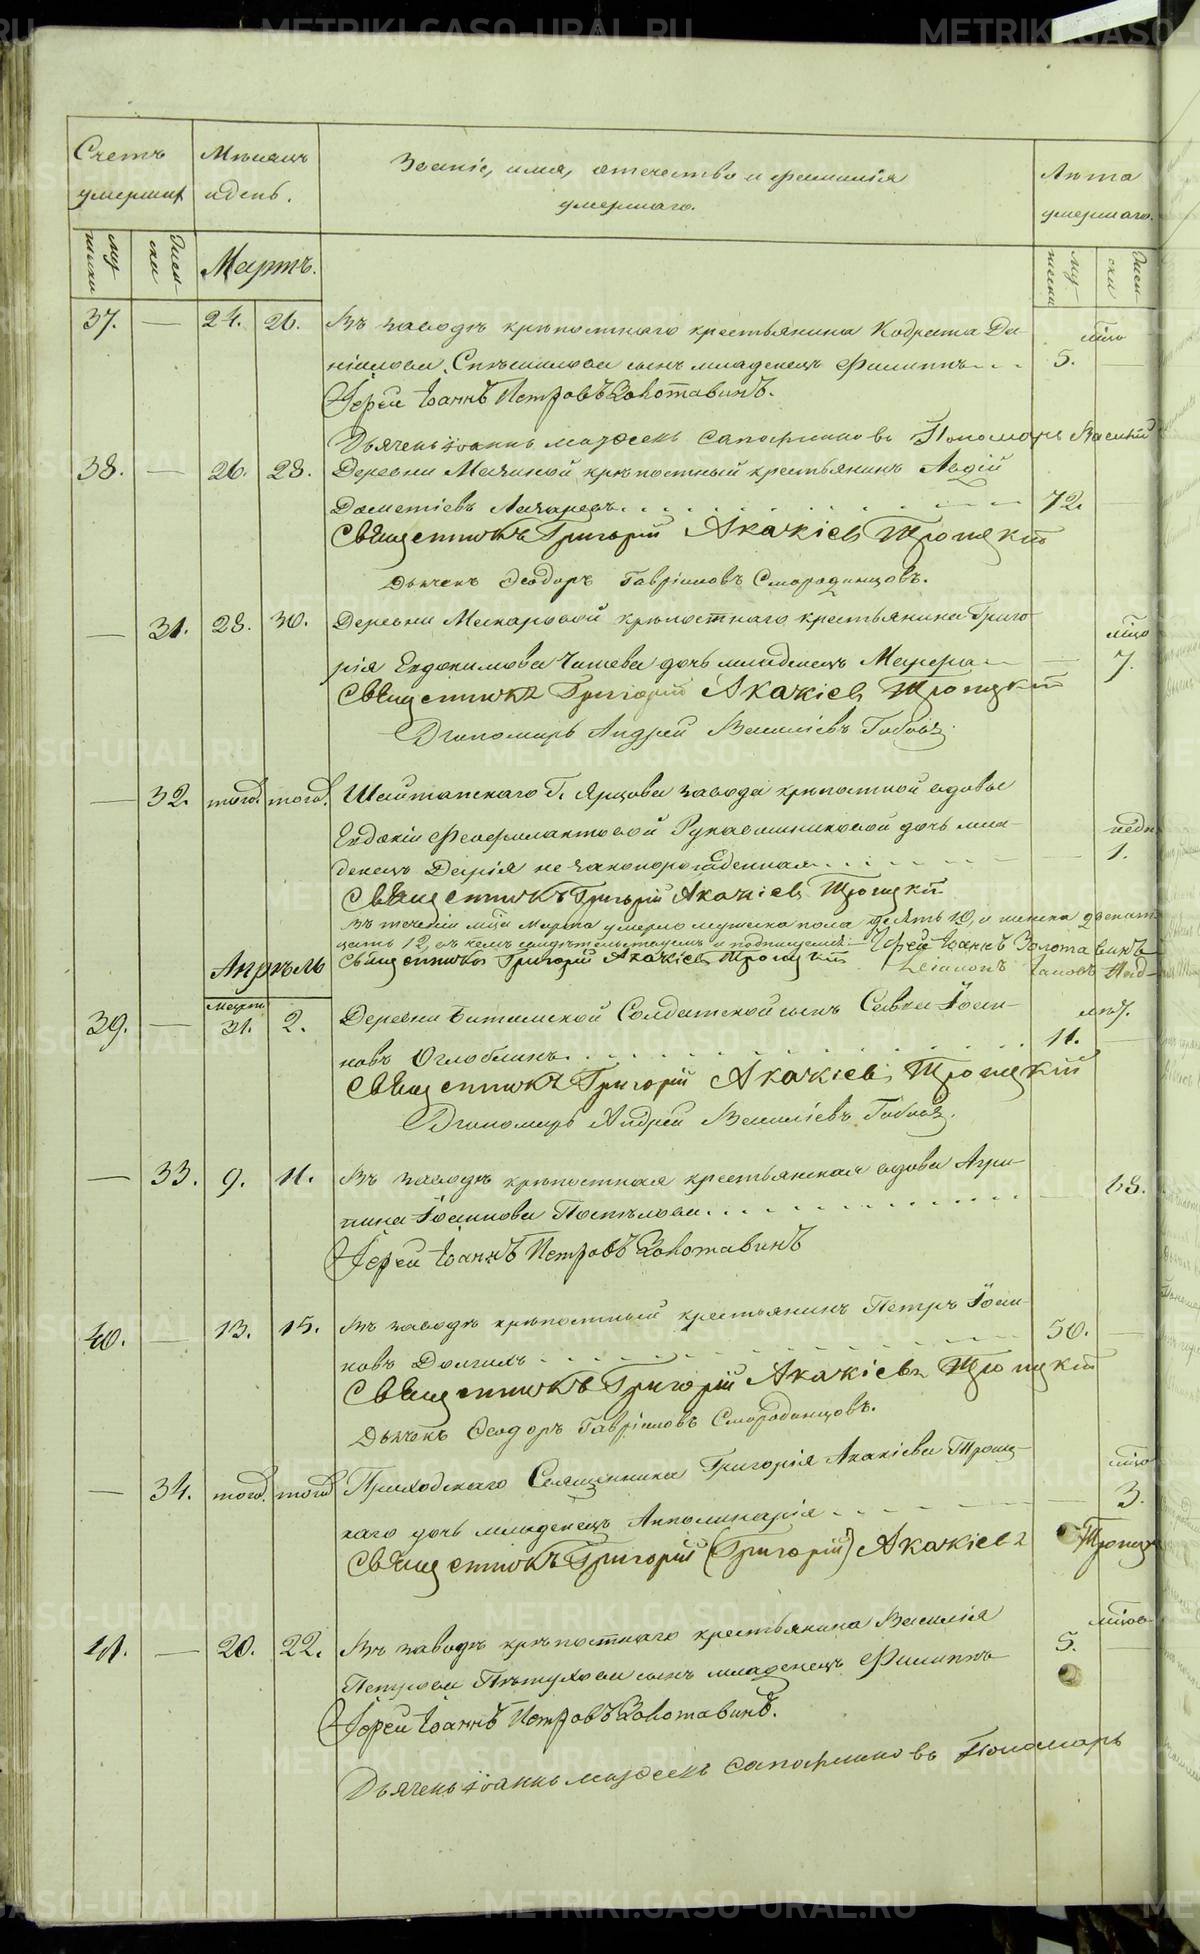 Счетъ умершихъ
Мѣсяцъ и день.
Званіе, имя, отечество и фамилія
умершаго.
Лѣта умершаго.
Мужески
Женски
Мартъ.
Мужески
Женски
37. — 24. 26. Въ заводѣ крѣпостнаго крестьянина Кодрата Да-
ніилова Спѣшилова сынъ младенецъ Филиппъ 5. мцовъ
Іерей Іоаннъ Петровъ Золотавинъ.
Дьячекъ Іоаннъ Пономарь Василій
38. — 26. 28. Деревни крѣпостный крестьянинъ Авдій
Дометіевъ 72.
Священникъ Григорій Акакіевъ Троицкій
Дьячекъ Ѳеодоръ Гавріиловъ Смородинцовъ.
— 31. 28. 30. Деревни Макаровой крѣпостнаго крестьянина Григо-
рія Евдокимова дочь младенецъ Марѳа — мцовъ 7.
Священникъ Григорій Акакіевъ Троицкій
Пономарь Андрей Василіевъ
— 32. тогожъ тогожъ. Шайтанскаго Г. Ярцова завода крѣпостной вдовы
Евдокіи Феофилактовой Рукавишниковой дочь мла-
денецъ Дарія незаконорожденная — недѣль 1.
Священникъ Григорій Акакіевъ Троицкій
Въ теченіи мца Марта умерло мужеска пола десять 10, и женска двенат-
цать 12, въ чемъ свидѣтельствуемъ и подписуемся: Іерей Іоаннъ Золотавинъ
Священникъ Григорій Акакіевъ Троицкій
Апрѣль
Марта
39. — 31. 2. Деревни Битимской Солдатской сынъ Савва Іоан-
новъ Оглоблинъ. 11. лѣтъ.
Священникъ Григорій Акакіевъ Троицкій
Пономарь Андрей Василіевъ
— 33. 9. 11. Въ заводѣ крѣпостная крестьянская вдова Агри-
пина Іоаннова Постылова. — 68.
Іерей Іоаннъ Петровъ Золотавинъ
40. — 13. 15. Въ заводѣ крѣпостный крестьянинъ Петръ Іоан-
новъ Долгихъ 50. —
Священникъ Григорій Акакіевъ Троицкій
Дьячекъ Ѳеодоръ Гавріиловъ Смородинцовъ.
— 34. тогожъ тогожъ Приходскаго Священника Григорія Акакіева Троиц-
каго дочь младенецъ Апполинарія — мцовъ 3.
Священникъ Григорій (Григорій) Акакіевъ Троицк
41. — 20. 22. Въ заводѣ крѣпостнаго крестьянина Василія
Петрова Пѣтухова сынъ младенецъ Филиппъ 5. мцовъ
Іерей Іоаннъ Петровъ Золотавинъ.
Дьячекъ Іоаннъ Пономарь
METRIKI.GASO-URAL.RU